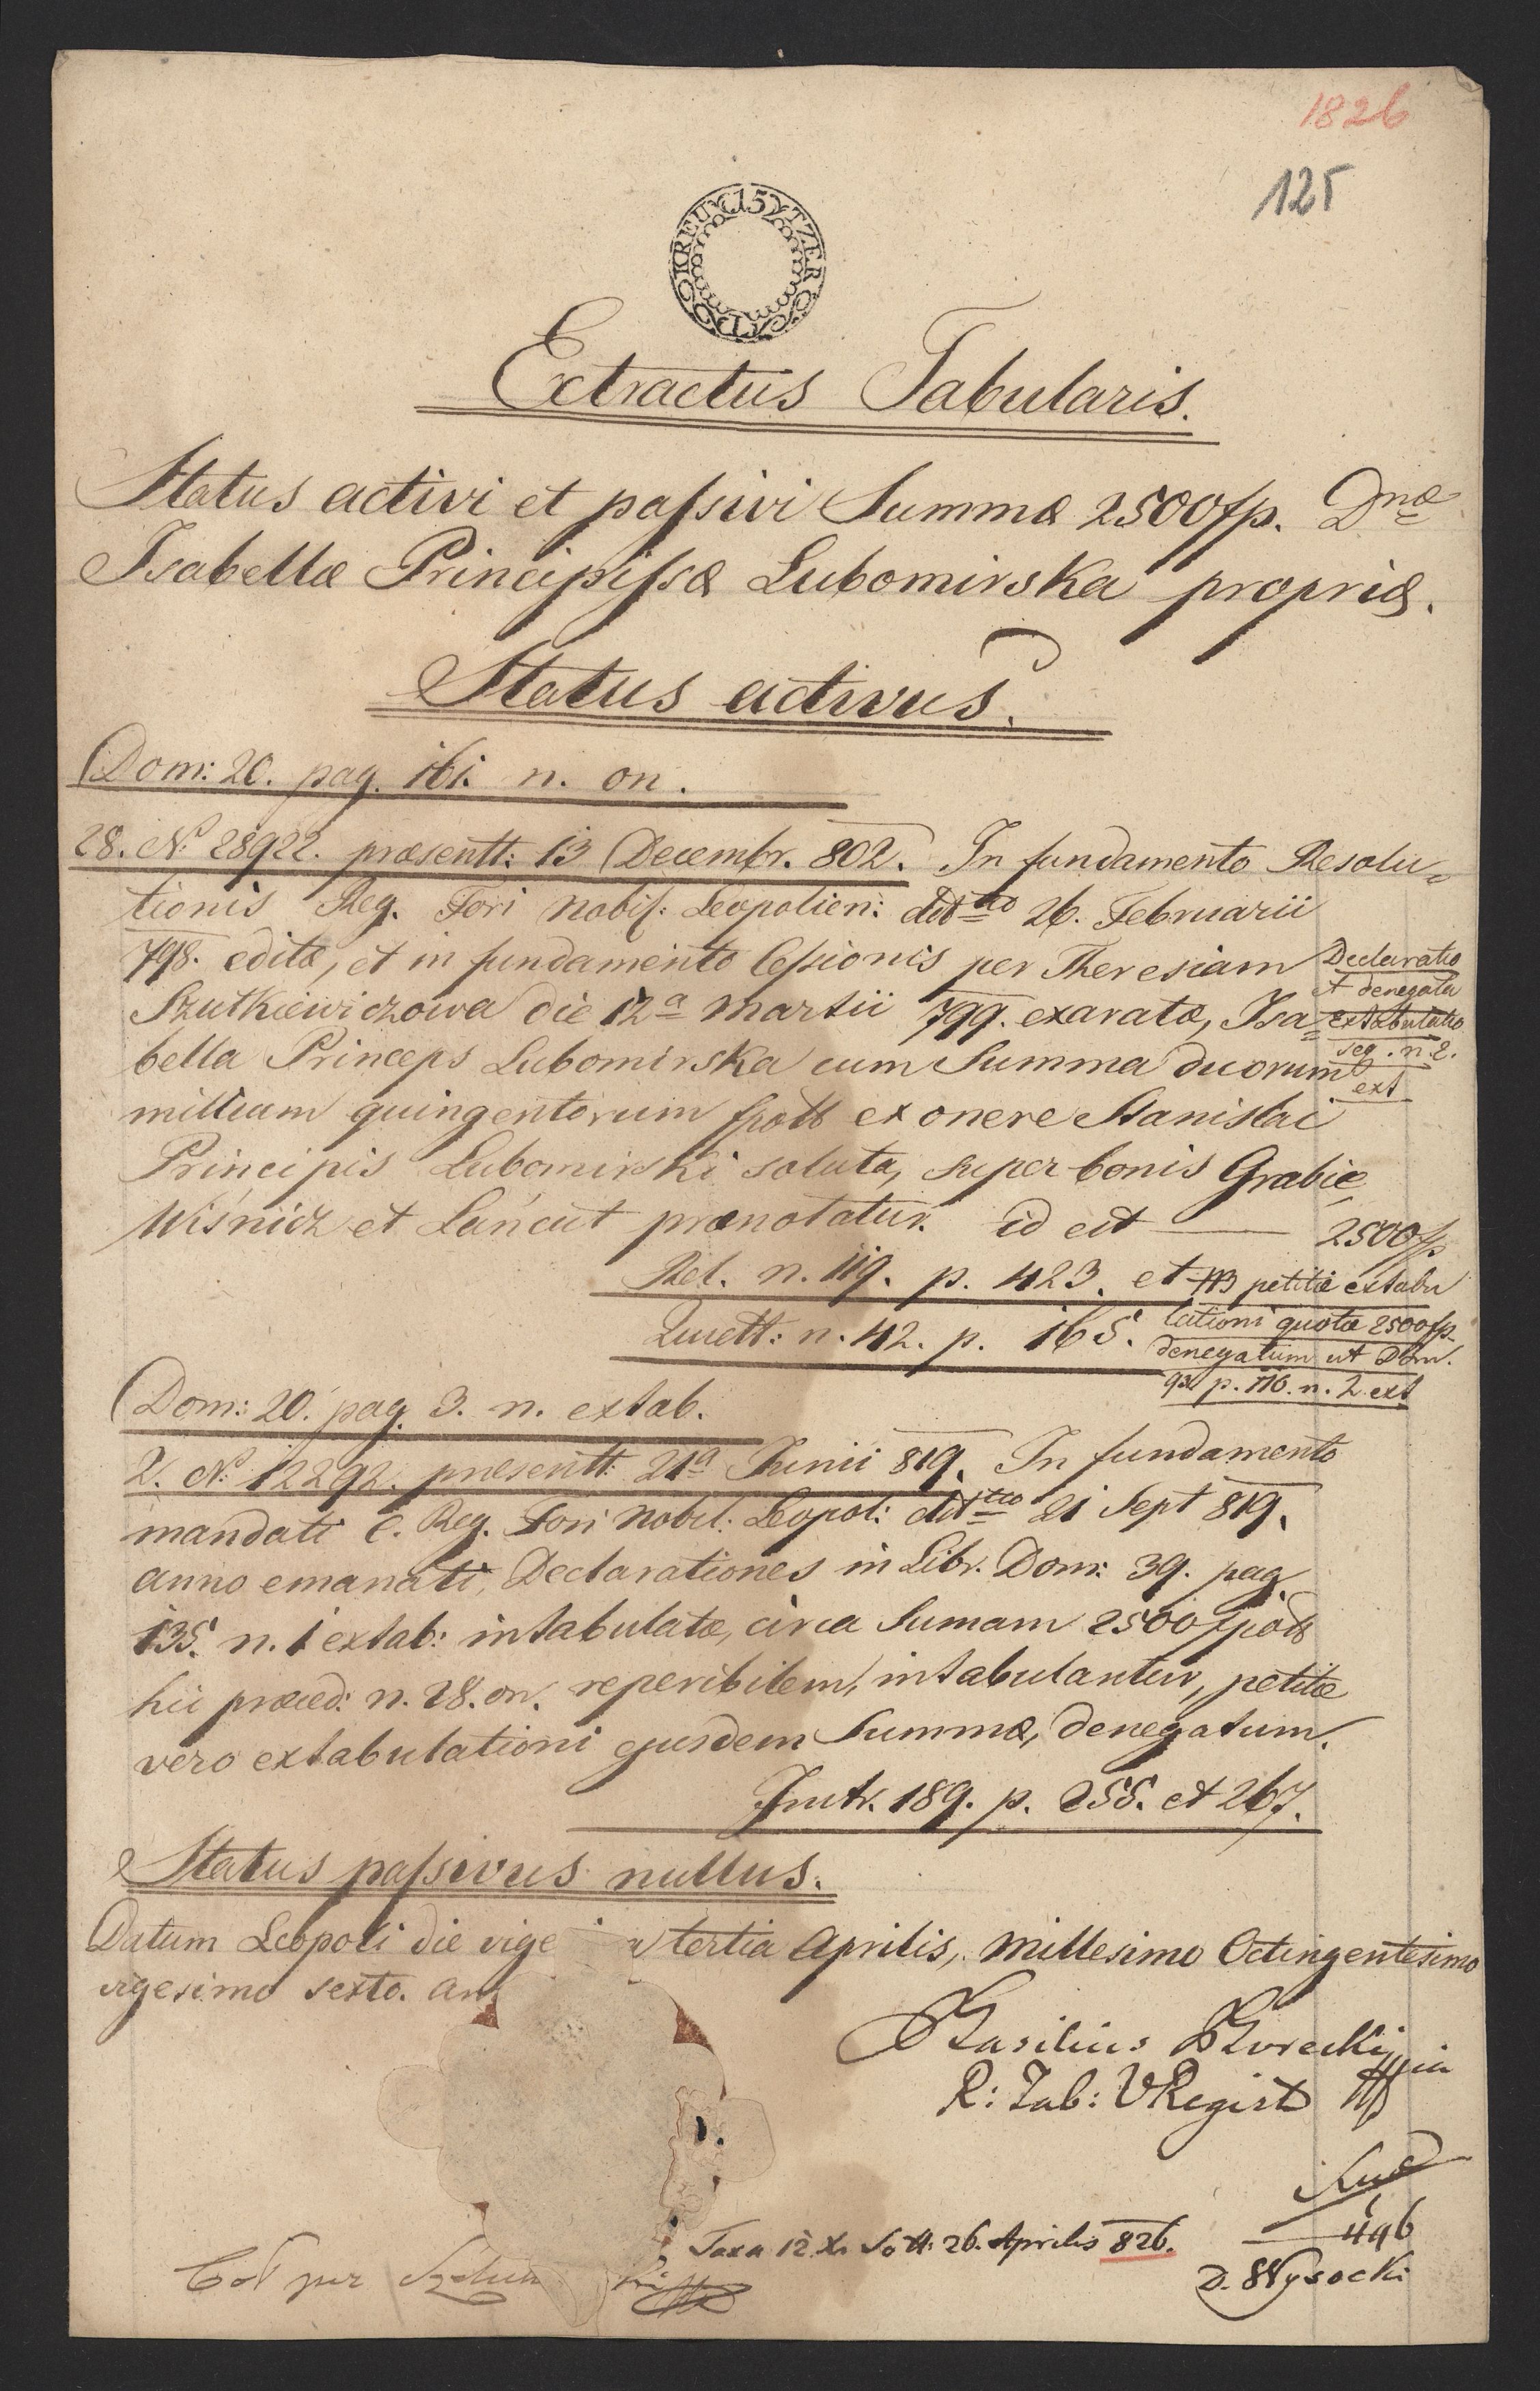 1826
125
15 KREUTZER
Extractus Tabularis.
Status activi et passivi Summæ 2500fp. Dnæ
Isabellæ Principissæ Lubomirska propriæ.
Status activus.
Dom: 20. pag. 161. n. on.
28. N. 28922. præsentt: 13 Decembr. 802. In fundamento Resolu=
tionis Reg. Fori Nobil: Leopolien: ddtto 26. Februarii
798. editæ, et in fundamento Cessionis per Theresiam
Szutkiewiczowa die 12a Martii 799. exaratæ, Isa=
bella Princeps Lubomirska cum Summa duorum
millium quingentorum fpoll ex onere Stanislai
Principis Lubomirski soluta, super bonis Grabie,
Wiśnicz et Łańcut prænotatur. id est — 2500fp
Declaratio
et denegata
extabulatio
seq. n. 2.
ext
Rel. n. 119. p. 423. et petitæ extabu
Quiett: n. 42. p. 165. lationi quotæ 2500fp.
denegatum ut Dom.
p. 116. n. 2 ext
Dom: 20. pag. 3. n. extab.
2. N. 12292. præsentt: 21a Junii 819. In fundamento
mandati C. Reg. Fori Nobil: Leopol: ddtto 21 Sept 819.
anno emanati, Declarationes in Libr. Dom: 39. pag.
135. n. 1 extab: intabulatæ, circa Sumam 2500 fpoll
hic præced: n. 28. on. reperibilem, intabulantur, petitæ
vero extabulationi ejusdem Summæ, denegatum.
Instr. 189. p. 255. et 267.
Status passivus nullus.
Datum Leopoli die vige tertia Aprilis, Millesimo Octingentesimo
vigesimo sexto. an
Basilius
R: Tab: VRegist
Taxa 12 Xr 26. Aprilis 826.
446
D. Wysocki
Col per